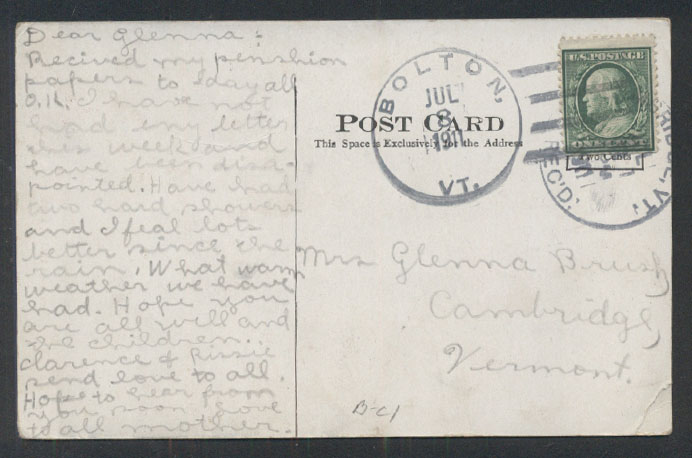 Dear Glenna:
Recived my penshion
papers to day all
O.K. I have not
had eny letter
this week and
have been disa-
pointed. Have had
two hard showers
and I feal lots
better since the
rain. What warm
weather we have
had. Hope you
are all well and
the children..
Clarence &
send love to all.
Hope to hear from
you soon love
to all mother.
POST CARD
This Space is Exclusively for the Address
BOLTON,
JUL
8
VT.
U.S. POSTAGE
ONE CENT
Two Cents
REC'D.
VT.
Mrs Glenna Brush
Cambridge,
Vermont.
B-C1